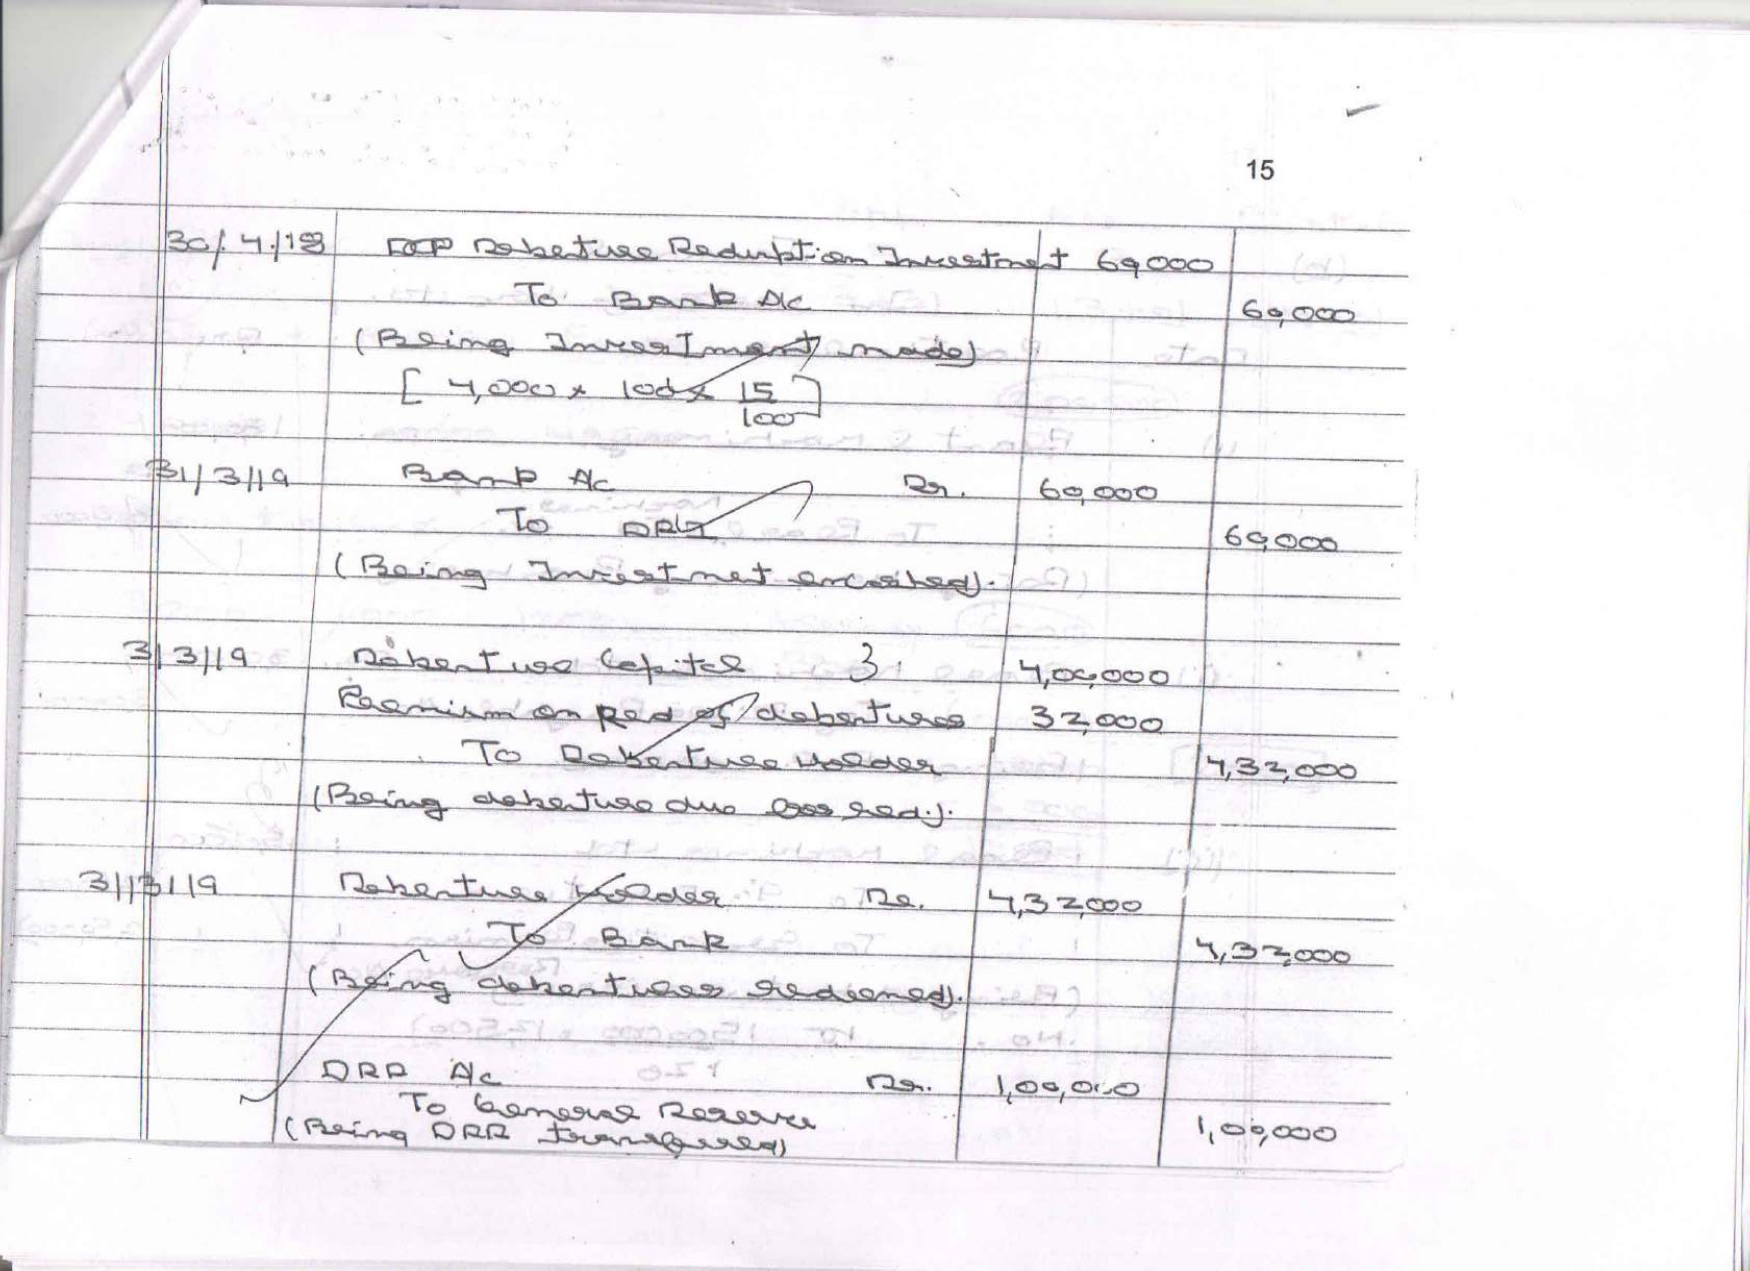 15
30/4/18 Debeture Reduption Investment 60,000
To Bank A/c 60,000
(Being Investment made)
[4,000 × 100 × 15/100]
31/3/19 Bank A/c Dr. 60,000
To DRI 60,000
(Being Investmet encashed).
31/3/19 Debenture Capital 4,00,000
Premium on Red of debentures 32,000
To Debenture Holder 4,32,000
(Being debenture due for red.).
31/3/19 Debenture Holder Dr. 4,32,000
To Bank 4,32,000
(Being debentures redeemed).
DRR A/c Dr. 1,00,000
To General Reserve
(Being DRR transferred) 1,00,000